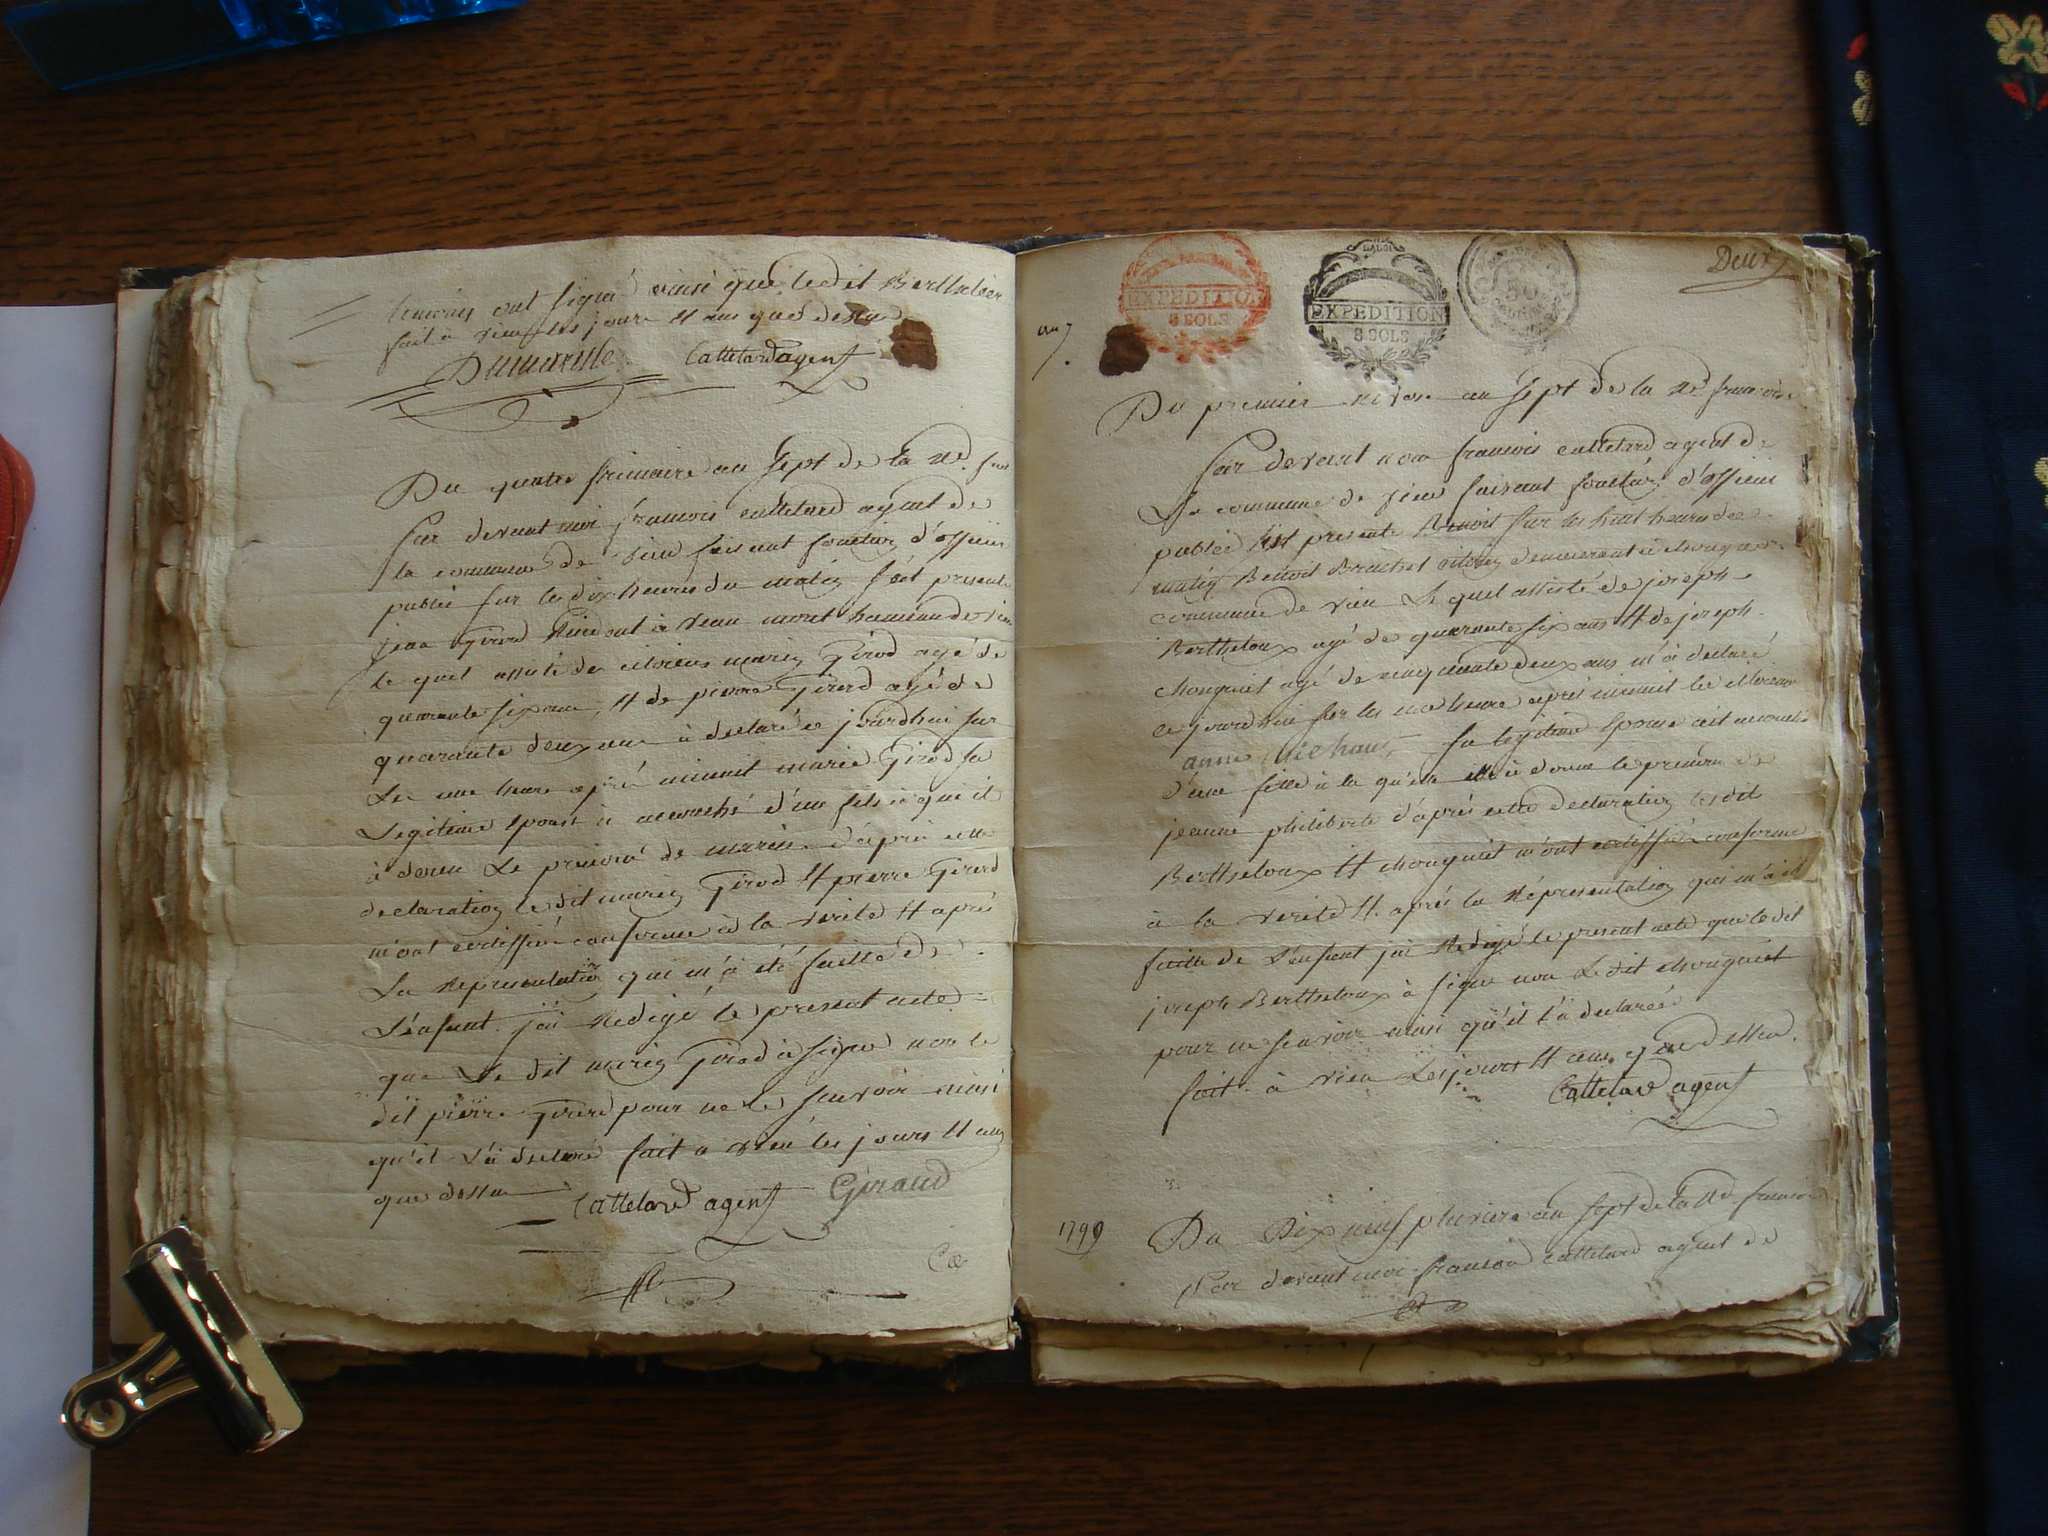 temoins ont signé ainsi que le dit Berthelier
fait à vieu les jours et ans que dessus
Cattelard agent
Du quatre frimaire an sept de la Re. fran
Par devant moi françois cattelard agent de
la commune de vieu faisant fonction d'officier
public sur les dix heures du matin s'est presenté
jean Girod à hameau de vieu
le quel assisté de citoiens marin Girod agé de
quarante six ans, et de pierre Girerd agé de
quarante deux ans à declaré ce jourdhui sur
Les une heure après minuit marie Girod sa
Legitime épouse à accouché d'un fils à que il
à donné Le prenom de marin d'après cette
declaration le dit marin Girod et pierre Girerd
m'ont certiffié conforme à la verité et après
La Representation qui m'à été faitte de
L'enfant j'ai Redigé le present acte
que Le dit marin Girod à signé non le
dit pierre Girerd pour ne le scavoir ainsi
qu'il l'à declaré fait a vieu les jours et ans
que dessus Cattelard agent Giraud
EXPEDITION
8 SOLS
EXPEDITION
8 SOLS
50
Deux
an 7
Du premier nivose an sept de la Re francoise
Par devant nous francois cattelard agent de
La commune de vieu faisant fonction d'officier
public s'est presenté Benoit sur les huit heures de
matin Benoit Brachet citoien demeurant à chongnes
commune de vieu Le quel assisté de joseph
Bertheloux agé de quarante six ans et de joseph
chonguiet agé de cinquante deux ans m'à declaré
ce jourdhui sur les une heure après minuit
anne Michaux sa legitime épouse
d'une fille à la qu'elle il à donné le prenom de
jeanne philiberte d'après cette declaration lesdit
Bertheloux et chonguiet m'ont certiffié conforme
à la verité et après la Représentation qui m'à été
faitte de L'enfant j'ai Redigé le present acte que le dit
joseph Bertheloux à signé non Le dit chonguiet
pour ne scavoir ainsi qu'il l'à declaré
fait à vieu Les jours et ans que dessus.
Cattelard agent
1799
Du Dix neuf pluviose an sept de la Re francoise
Par devant moi francois cattelard agent de